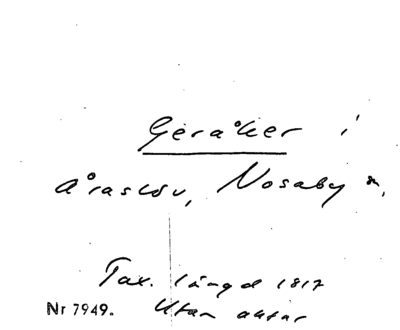 Geråker i
Araslöv, Nosaby sn,
Tax. längd 1817
Nr 7949. Utan antar